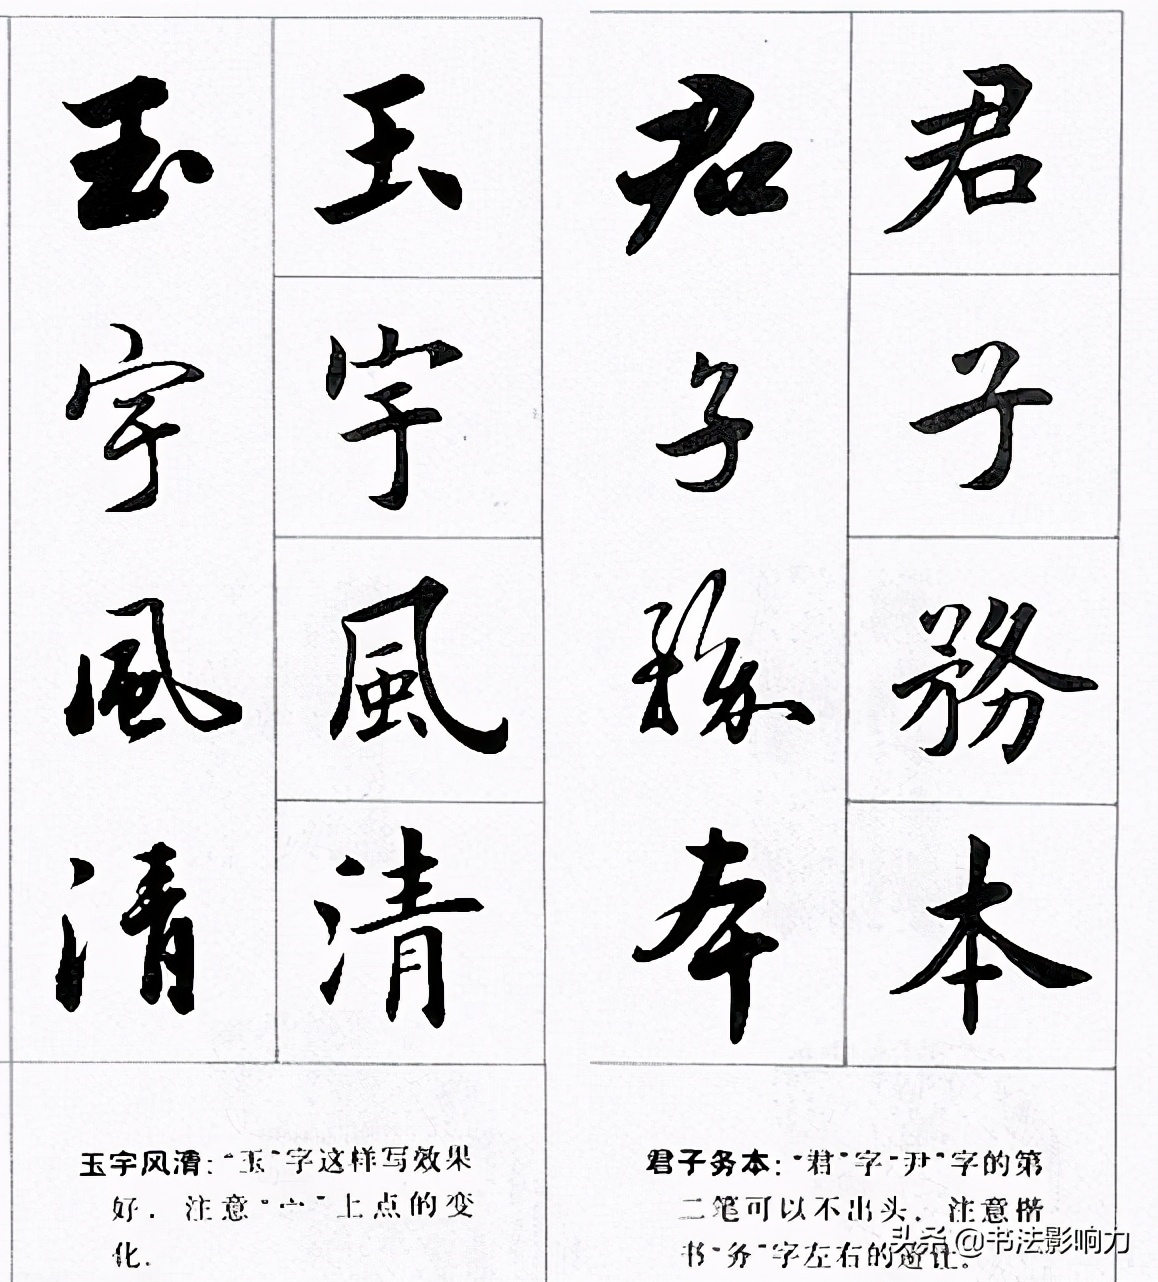 玉宇風清
玉宇風清
君子務本
君子務本
玉宇风清：“玉”字这样写效果
好．注意“宀”上点的变
化．
君子务本：“君”字“尹”字的第
二笔可以不出头．注意楷
书“务”字左右的避让。
头条 @书法影响力